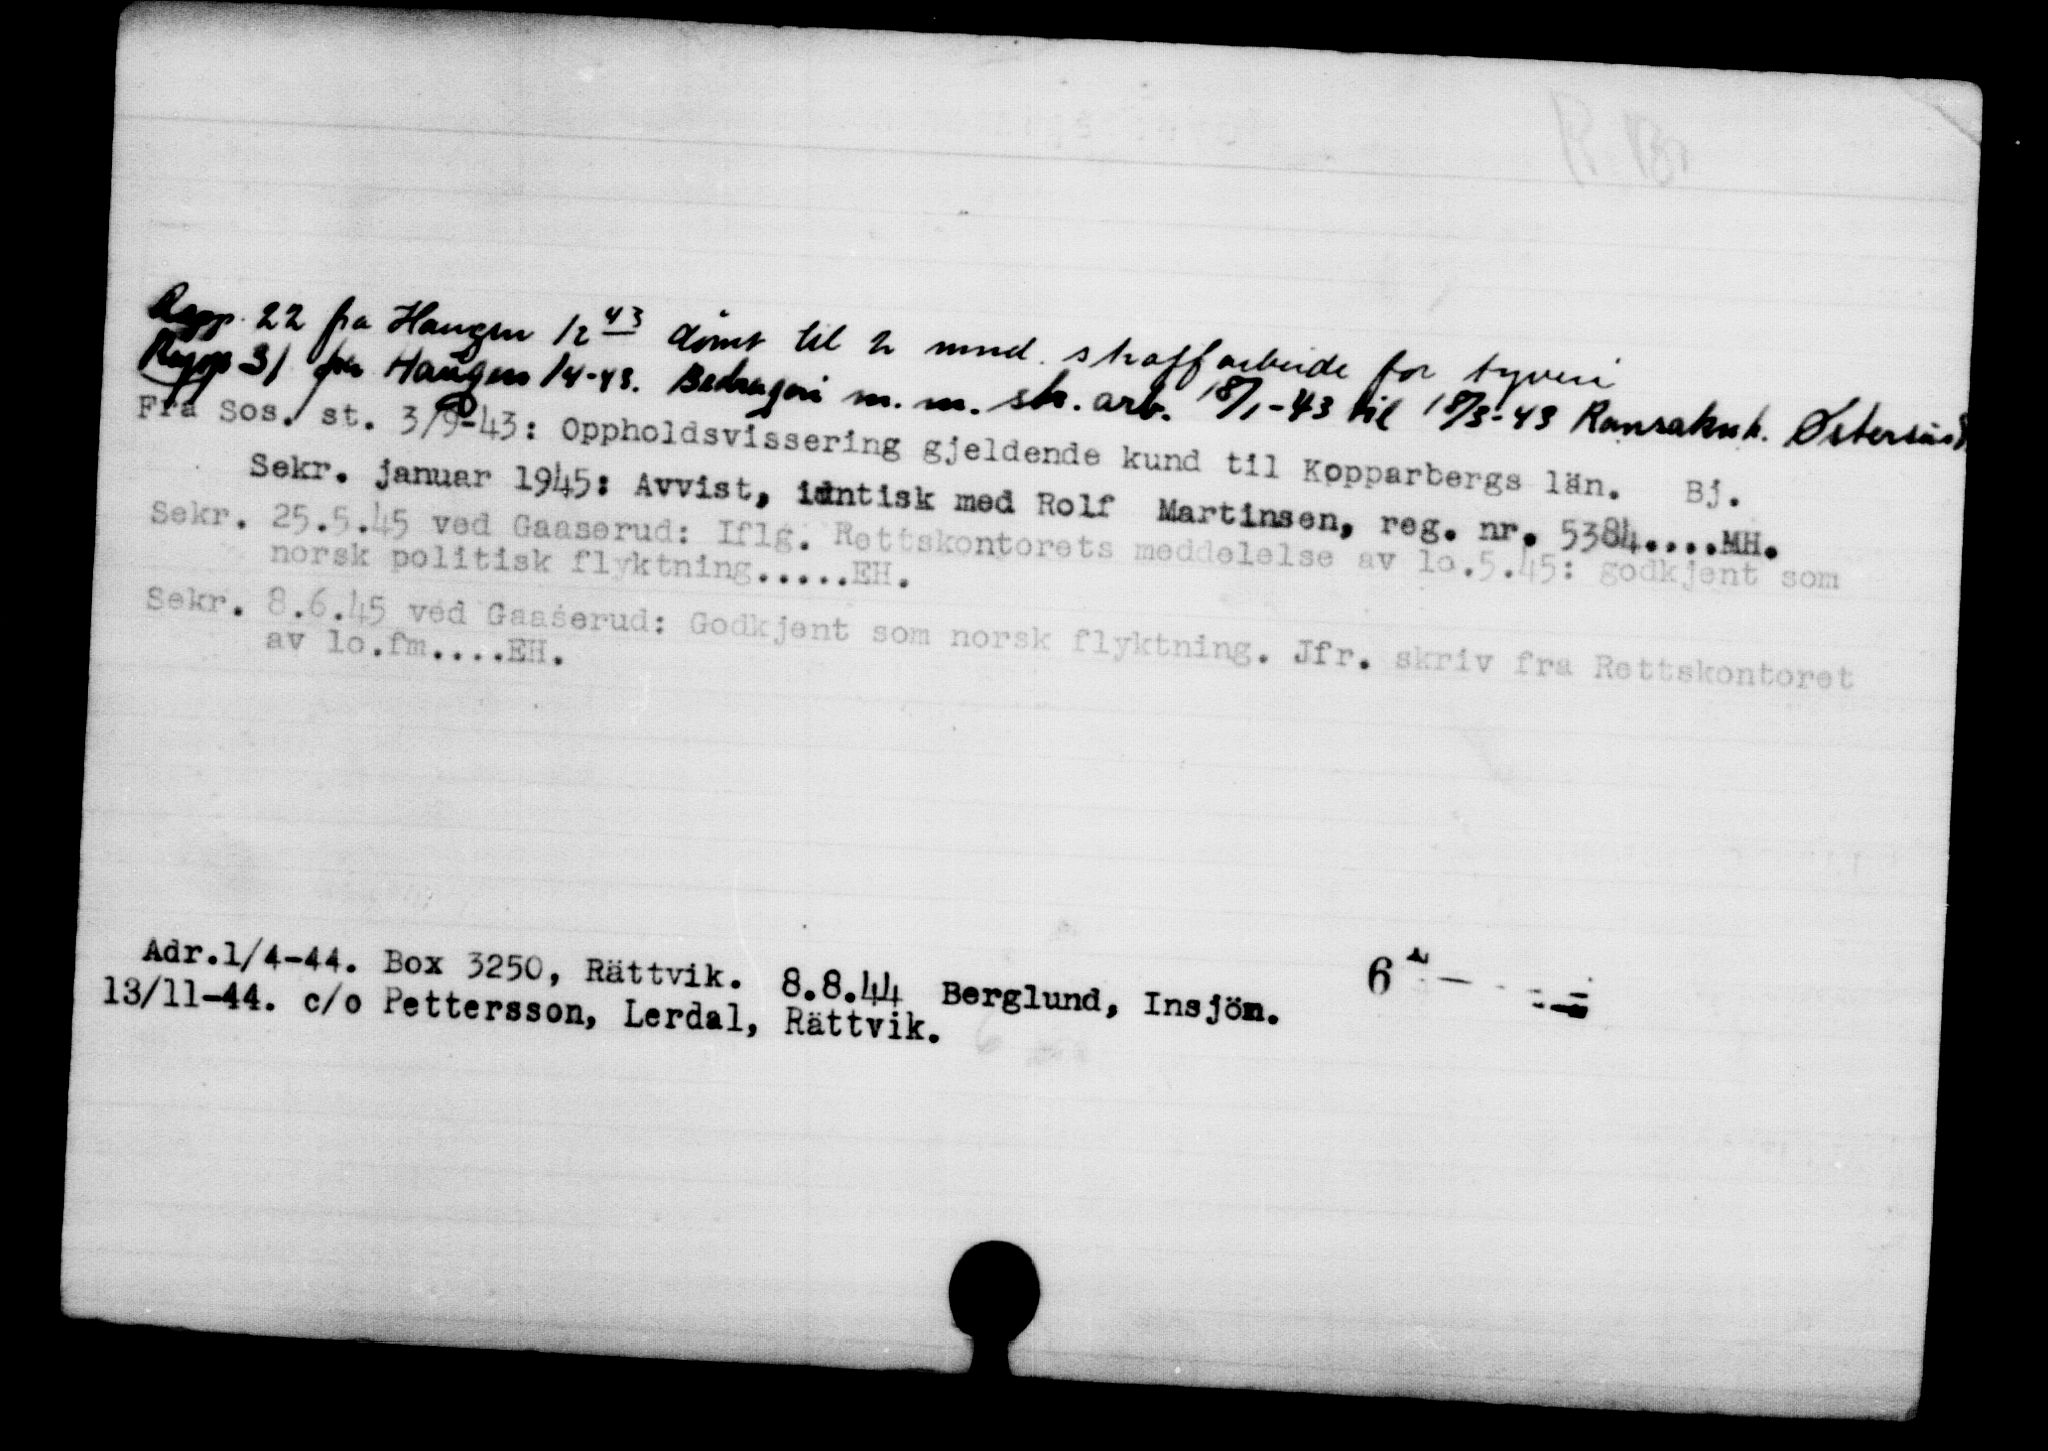 Rapp. 22 fra Haugen 1/2 43 dømt til 2 mnd. straffarbeide for tyveri
Rapp 31 fra Haugen 1/4-43. Bedrageri m.m. str. arb. 18/1-43 til 18/3-43 Østersund
Fra Sos. st. 3/9-43: Oppholdsvissering gjeldende kund til Kopparbergs län. Bj.
Sekr. januar 1945: Avvist, idntisk med Rolf Martinsen, reg. nr. 5384....MH.
Sekr. 25.5.45 ved Gaaserud: Iflg. Rettskontorets meddelelse av lo.5.45: godkjent som
norsk politisk flyktning.....EH.
Sekr. 8.6.45 ved Gaaserud: Godkjent som norsk flyktning. Jfr. skriv fra Rettskontoret
av lo.fm....EH.
Adr.1/4-44. Box 3250, Rättvik. 8.8.44 Berglund, Insjön.
13/11-44. c/o Pettersson, Lerdal, Rättvik.
6